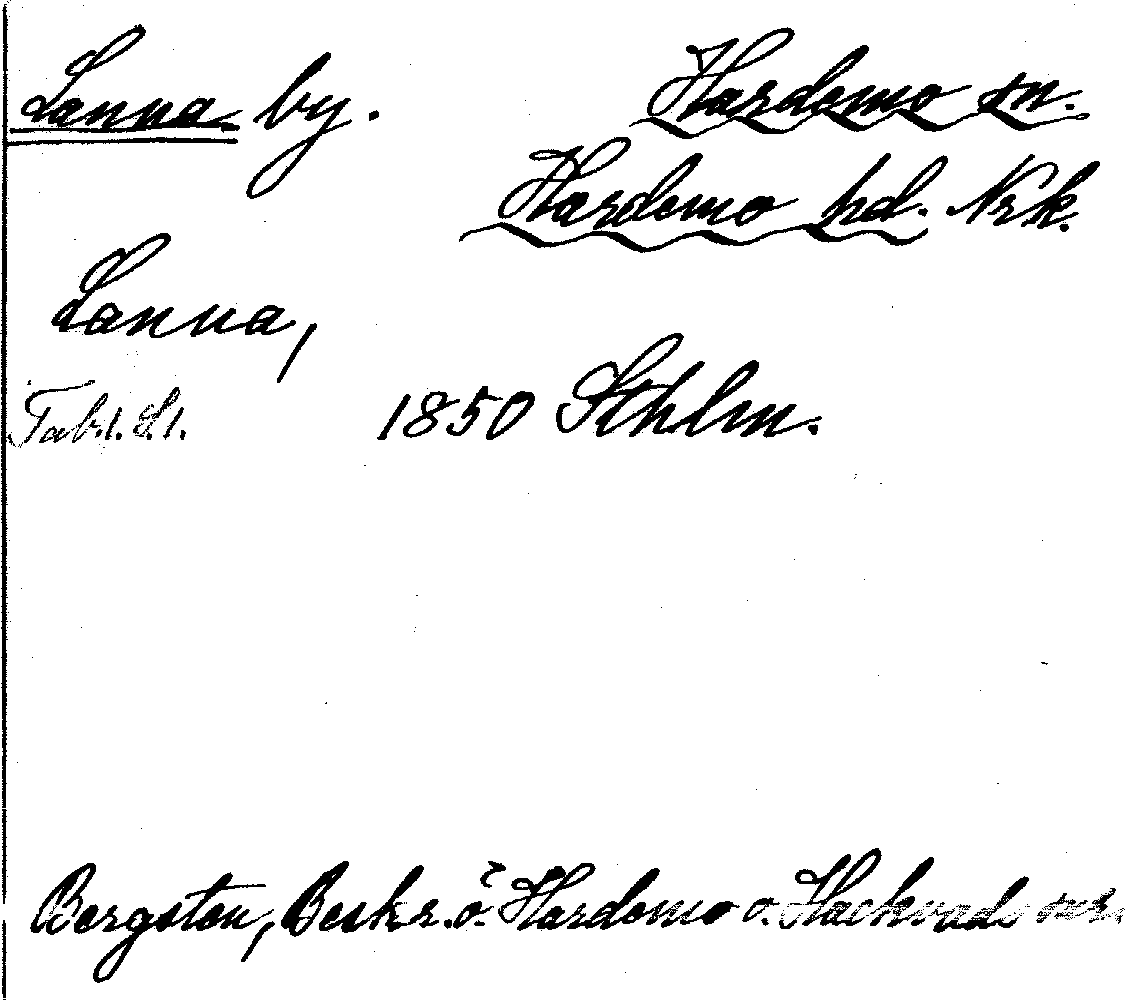 Lanna by. Hardemo sn.
Hardemo hd. Nrk.
Lanna,
Tab. 1. S. 1. 1850 Sthlm.
Bergsten, Beskr. ö. Hardemo o. Hackvads snr.